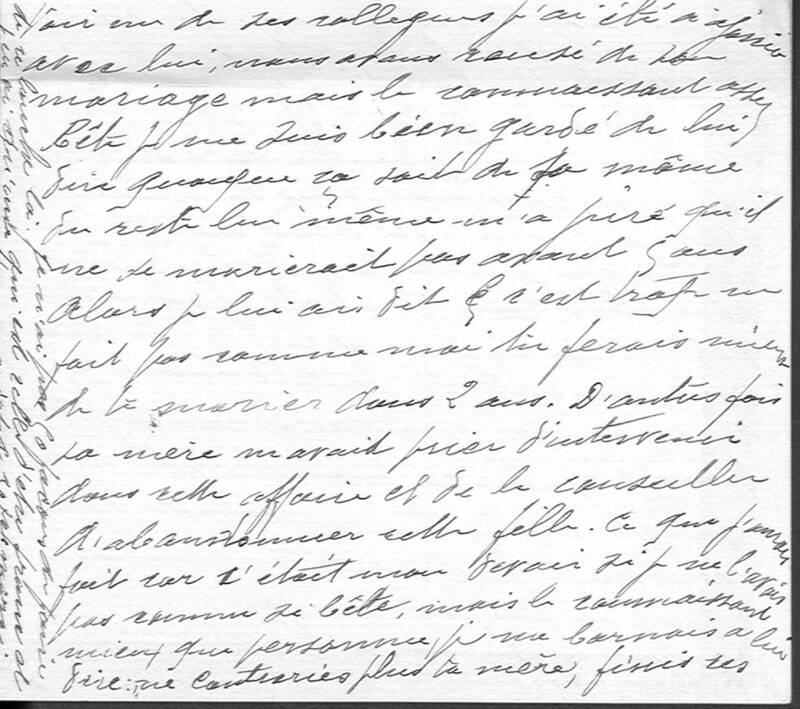 voir un de ses collegues j'ai été à
avec lui, nous avons causé de son
mariage mais le connaissant assez
bête je me suis bien gardé de lui
dire quoique ça soit de
du reste lui même m'a juré qu'il
ne se marierait pas avant 5 ans
Alors je lui ai dit 5 c'est trop ne
fait pas comme moi tu ferais mieux
de te marier dans 2 ans. D'autres fois
sa mère m'avait prier d'intervenir
dans cette affaire et de le conseiller
d'abandonner cette fille. Ce que j'aurais
fait car c'était mon devoir si je ne l'avais
pas connu si bête, mais le connaissant
mieux que personne, je me bornais a lui
dire: ne contraries plus ta mère, finis ses
la je n'ai pas
qui est celle d'etre franc et